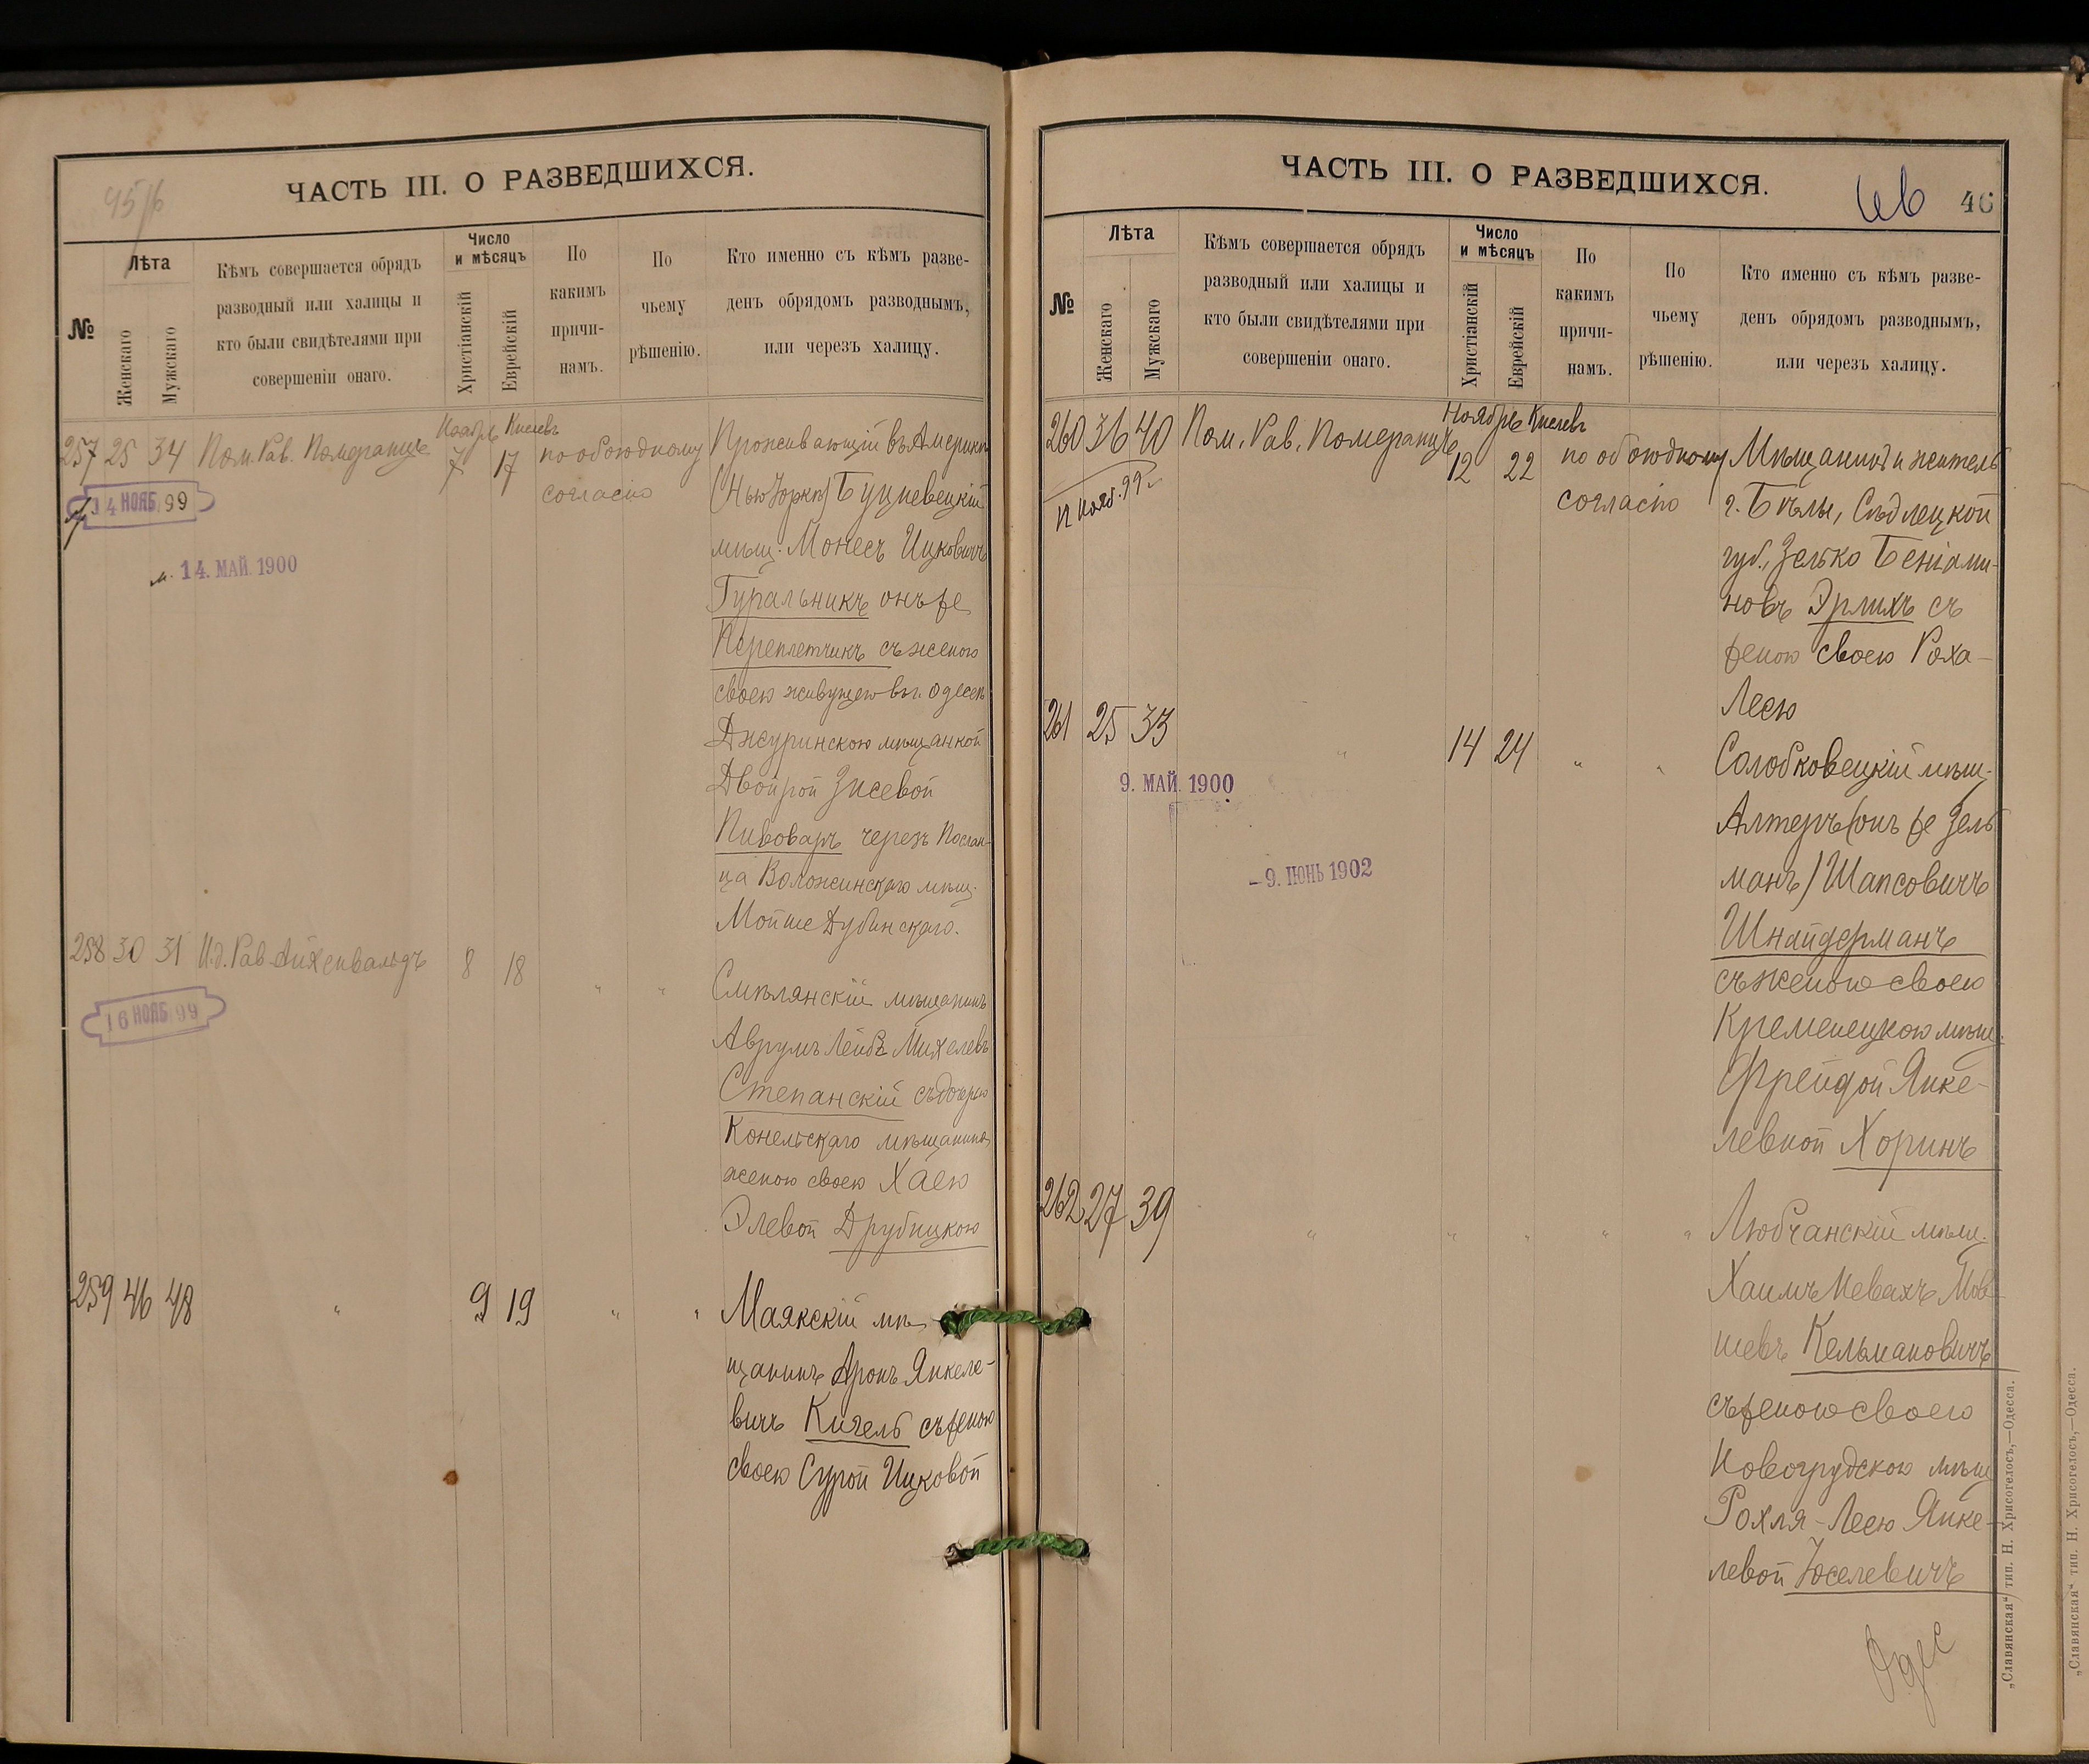 95/6
ЧАСТЬ III. О РАЗВЕДШИХСЯ.
№
Лѣта
Женскаго
Мужскаго
Кѣмъ совершается обрядъ
разводный или халицы и
кто были свидѣтелями при
совершеніи онаго.
Число
и мѣсяцъ
Христіанскій
Еврейскій
По
какимъ
причи-
намъ.
По
чьему
рѣшенію.
Кто именно съ кѣмъ разве-
денъ обрядомъ разводнымъ,
или черезъ халицу.
257 25 34 Пом. Рав. Померанцъ
Ноябрь Кислевъ
7 17
по обоюдному
согласію
14 НОЯБ. 99
14. МАЙ 1900
Проживающій въ Америкѣ
(Нью Іоркѣ) Буцневецкій
мѣщ. Монесъ Ицковичъ
Гуральникъ онъ же
Переплетчикъ съ женою
своею живущею въ г. Одессѣ
Джуринскою мѣщанкой
Двойрой Зисевой
Пивоваръ черезъ Послан-
ца Воложинскаго мѣщ.
Мойше Дубинскаго.
258 30 31 И.д. Рав. Айхенвальдъ 8 18 " "
16 НОЯБ. 99
Смѣлянскій мѣщанинъ
Аврумъ Лейбъ Михелевъ
Степанскій съ дочерью
Конельскаго мѣщанина
женою своею Хаею
Элевой Друбицкою
259 46 48 " 9 19 " "
Маякскій мѣ-
щанинъ Аронъ Янкеле-
вичъ Кигель съ женою
своею Сурой Ицковой
ЧАСТЬ III. О РАЗВЕДШИХСЯ.
46
46
№
Лѣта
Женскаго
Мужскаго
Кѣмъ совершается обрядъ
разводный или халицы и
кто были свидѣтелями при
совершеніи онаго.
Число
и мѣсяцъ
Христіанскій
Еврейскій
По
какимъ
причи-
намъ.
По
чьему
рѣшенію.
Кто именно съ кѣмъ разве-
денъ обрядомъ разводнымъ,
или черезъ халицу.
260 36 40 Пом. Рав. Померанцъ
Ноябрь Кислевъ
12 22
по обоюдному
согласію
Нояб. 99
Мѣщанинъ и житель
г. Бѣлы, Сѣдлецкой
губ., Зелько Беніами-
новъ Эрлихъ съ
женою своею Роха-
Лею
261 25 33 " 14 24 " "
9. МАЙ 1900
9. ІЮНЬ 1902
Солобковецкій мѣщ.
Алтеръ (онъ же Зель
манъ) Шапсовичъ
Шнайдерманъ
съ женою своею
Кременецкою мѣщ.
Фрейдой Янке-
левной Хоринъ
262 27 39 " " " " "
Любчанскій мѣщ.
Хаимъ Мевахъ Мов-
шевъ Кельмановичъ
съ женою своею
Новогрудскою мѣщ
Рохля-Лею Янке-
левой Іоселевичъ
Одес
„Славянская“ тип. Н. Хрисогелосъ,—Одесса.
„Славянская“ тип. Н. Хрисогелосъ,—Одесса.